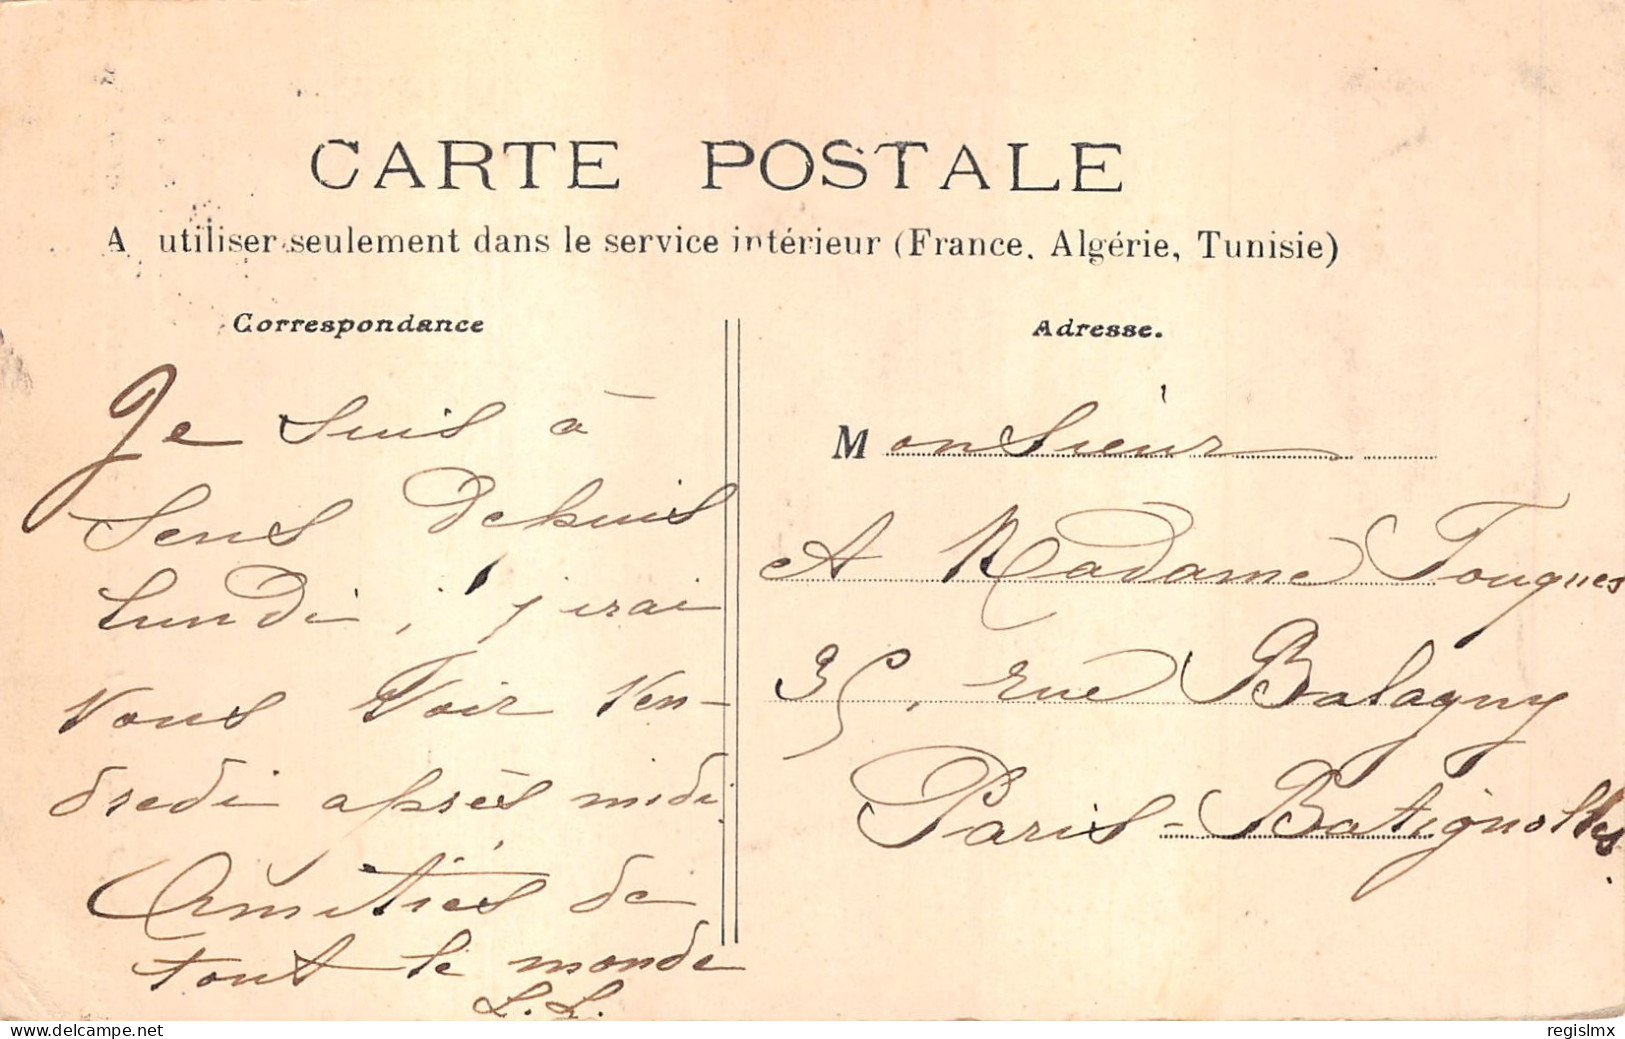 CARTE POSTALE
A utiliser seulement dans le service intérieur (France, Algérie, Tunisie)
Correspondance
Je suis à
Sens depuis
lundi, j'irai
vous voir ven-
dredi après midi
Amitiés de
tout le monde
L. L.
Adresse.
Monsieur
A Madame Fougues
35, rue Balagny
Paris-Batignolles.
www.delcampe.net
regislmx